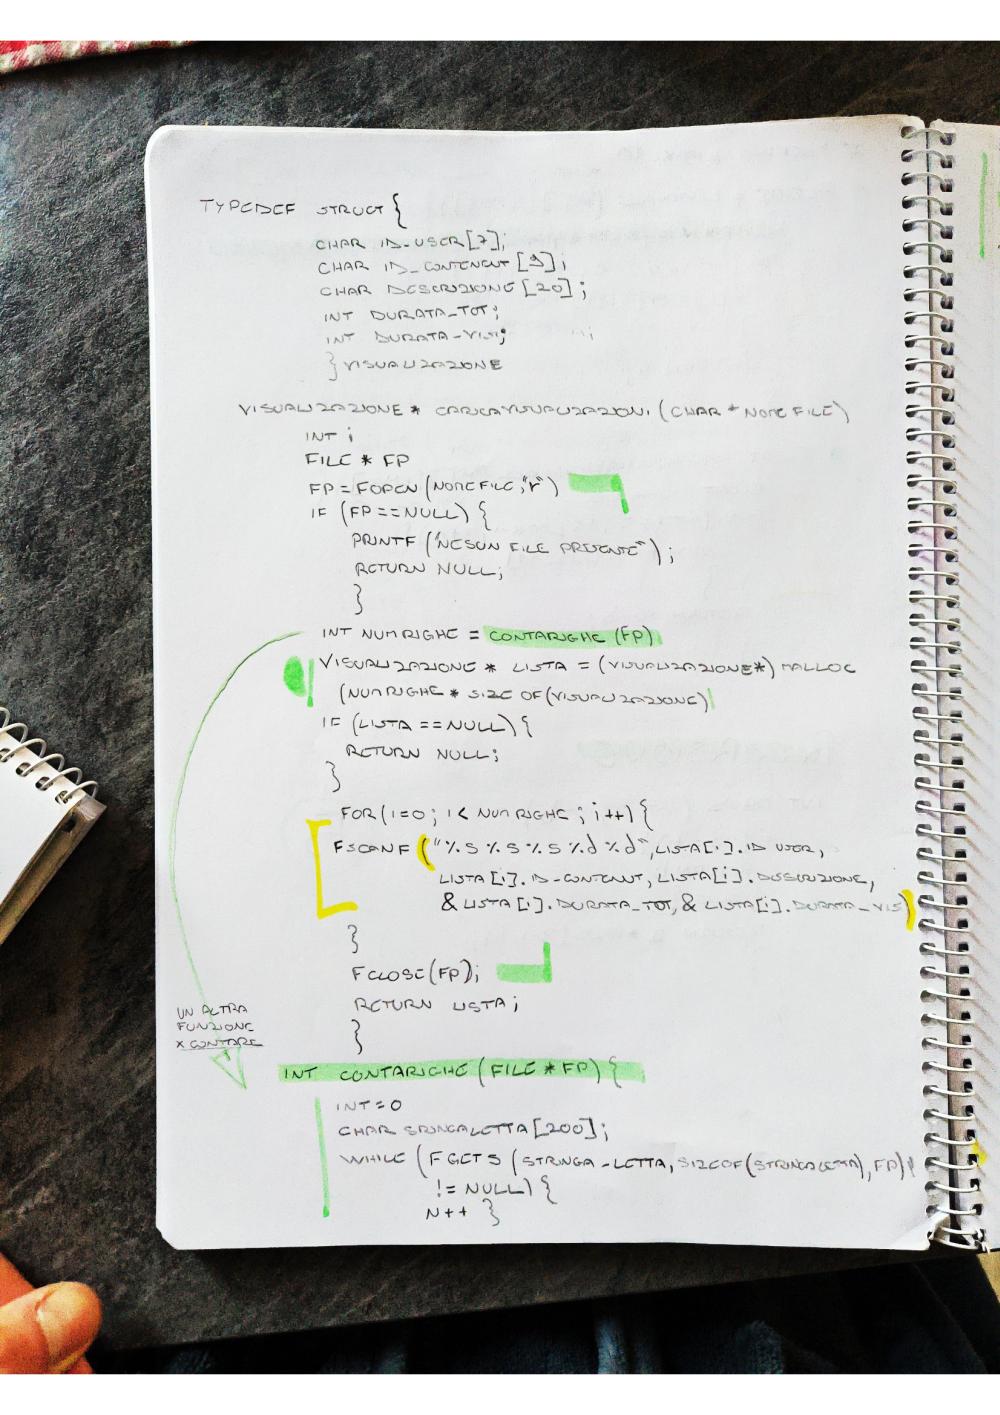 TYPEDEF STRUCT {
CHAR ID_USER[7];
CHAR ID_CONTENUT[9];
CHAR DESCRIZIONE[20];
INT DURATA_TOT;
INT DURATA_VIS;
} VISUALIZZAZIONE
VISUALIZZAZIONE * CARICAVISUALIZZAZIONI (CHAR * NOMEFILE)
INT i
FILE * FP
FP = FOPEN (NOMEFILE,"r")
IF (FP == NULL) {
PRINTF ("NESUN FILE PRESENTE");
RETURN NULL;
}
INT NUMRIGHE = CONTARIGHE (FP)
VISUALIZZAZIONE * LISTA = (VISUALIZZAZIONE*) MALLOC
(NUMRIGHE * SIZE OF (VISUALIZZAZIONE)
IF (LISTA == NULL) {
RETURN NULL;
}
FOR (I=0; I < NUMRIGHE; i++) {
FSCANF ("%s %s %s %d %d", LISTA[i].ID USER,
LISTA[i].ID_CONTENUT, LISTA[i].DESCRIZIONE,
& LISTA[i].DURATA_TOT, & LISTA[i].DURATA_VIS)
}
FCLOSE(FP);
RETURN LISTA;
}
UN ALTRA
FUNZIONE
X CONTARE
INT CONTARIGHE (FILE * FP) {
INT=0
CHAR SRINGALETTA[200];
WHILE (FGETS (STRINGA_LETTA, SIZEOF(STRINGALETTA), FP)
!= NULL) {
N++ }